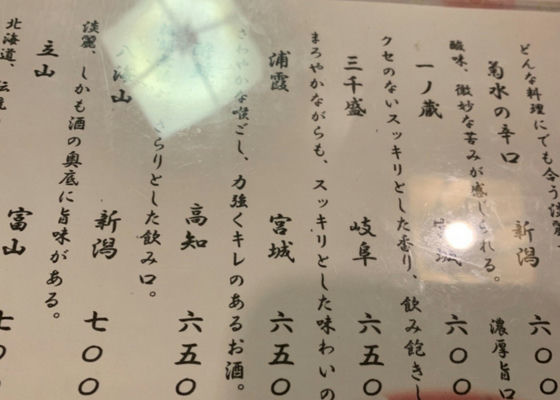 どんな料理にでも合う淡麗
菊水の辛口 新潟 六〇〇
酸味、微妙な苦みが感じられる。 濃厚旨口
一ノ蔵 宮城 六〇〇
クセのないスッキリとした香り、飲み飽きし
三千盛 岐阜 六五〇
まろやかながらも、スッキリとした味わいの
浦霞 宮城 六五〇
さわやかな喉ごし、力強くキレのあるお酒。
高知 六五〇
さらりとした飲み口。
八海山 新潟 七〇〇
淡麗、しかも酒の奥底に旨味がある。
立山 富山 七〇〇
北海道、